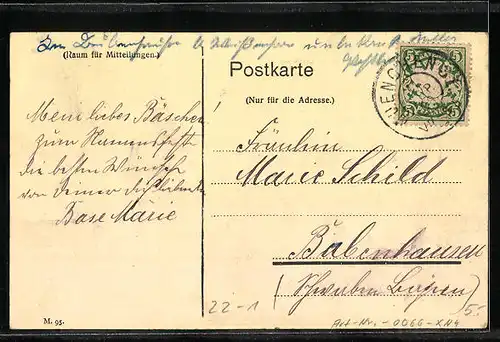 (Raum für Mitteilungen.)
Postkarte
(Nur für die Adresse.)
5 5
MUENCHEN
Mein liebes Bäschen
zum Namensfeste
die besten Wünsche
von deiner dich liebenden
Base Marie
Fräulein
Marie Schild
Babenhausen
(Schwaben Bayern)
M. 95.
22-1
Art-Nr.-0066-XA4
5.-